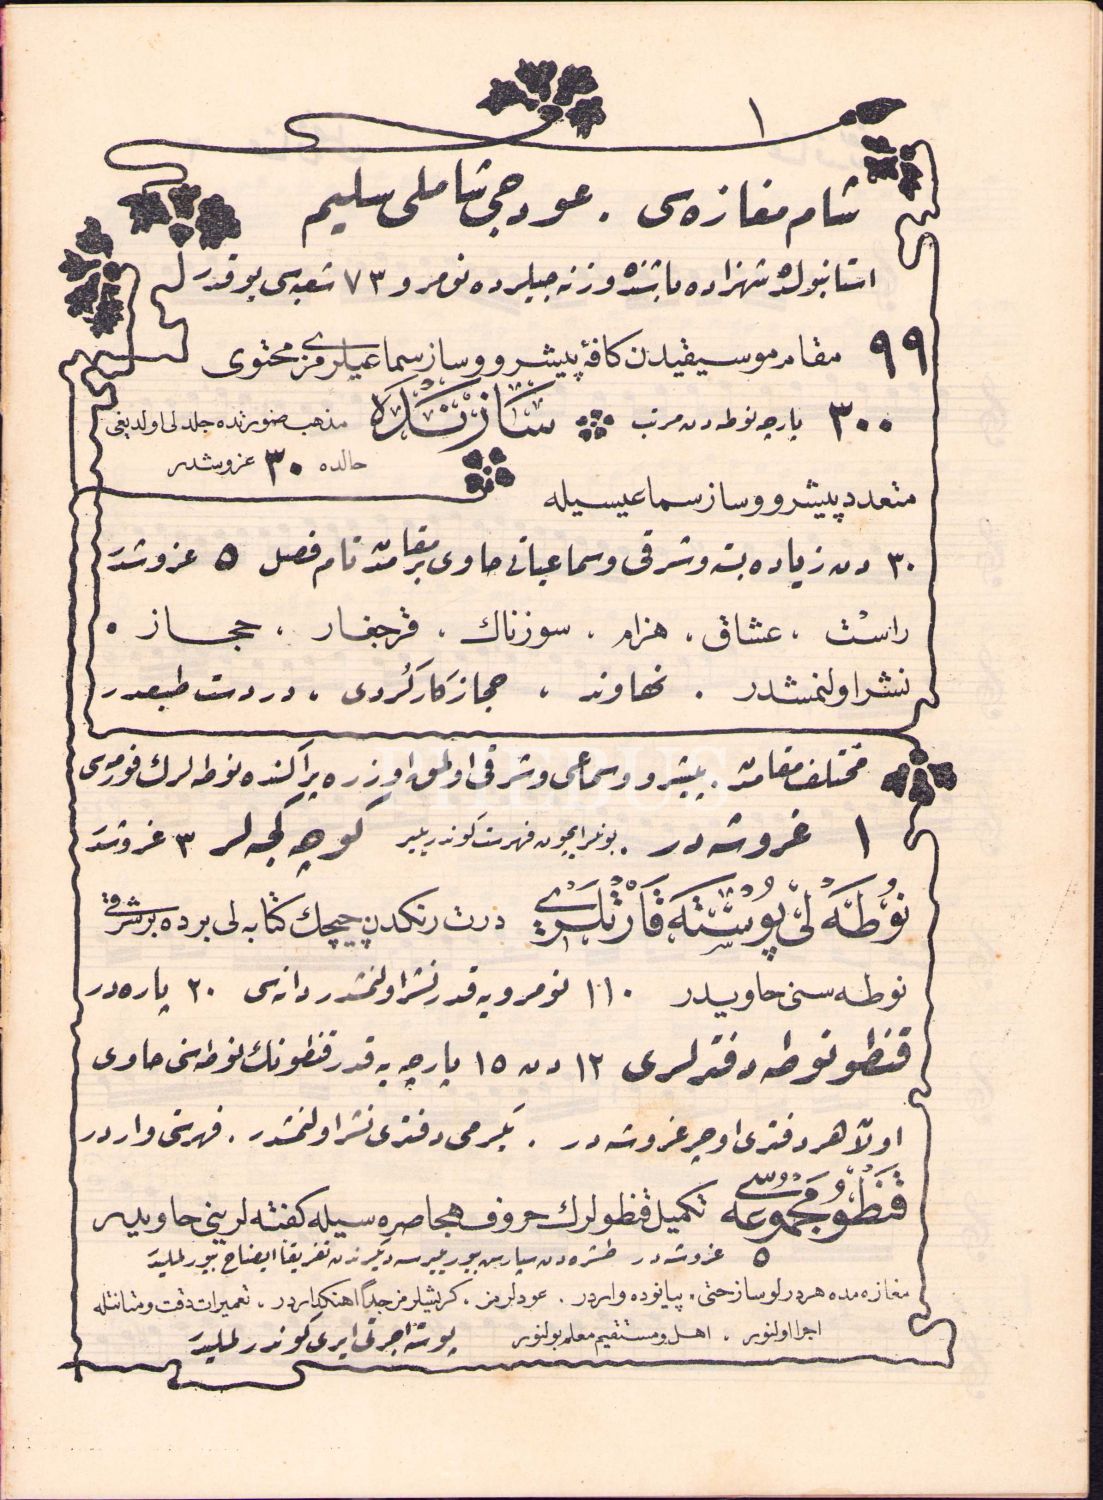 ١
شام مغازه‌سی . عودجی شاملی سلیم
استانبولده شهزاده باشنده وزنه‌جیلرده نومرو ٧٣ شعبه‌سی یوقدر
٩٩ مقام موسیقیدن کافهٔ پیشرو و ساز سماعیلرمزی محتوی
٣٠٠ پارچه نوطه‌دن مرتب سازنده مذهب صورتده جلدلی اولدیغی
حالده ٣٠ غروشدر
متعدد پیشرو و ساز سماعیسیله
٣٠ دن زیاده بسته و شرقی و سماعیاتی حاوی بر مقامده تام فصل ٥ غروشدر
راست ، عشاق ، هزام ، سوزناك ، قرجغار ، حجاز .
نشر اولنمشدر . نهاوند ، حجازکار کردی ، دردست طبعدر
مختلف مقامده . پیشرو و سماعی و شرقی اولمق اوزره پراکنده نوطه‌لرك فورمه‌سی
١ غروشه‌در . بونلر ایچون فهرست کوندریلیر کوچه‌کجه‌لر ٣ غروشدر
نوطه‌لی پوسته قارتلری درت رنکدن چیچك کتابه‌لی برده بر شرقی
نوطه‌سنی حاویدر ١١٠ نومرویه قدر نشر اولنمشدر دانه‌سی ٢٠ پاره‌در
قنطو نوطه دفترلری ١٢ دن ١٥ پارچه‌یه قدر قنطونك نوطه‌سنی حاوی
اولا هر دفتری اوچر غروشه‌در . یکرمی دفتری نشر اولنمشدر . فهرستی واردر
قنطو مجموعه‌سی تکمیل قنطولرك حروف هجا صره‌سیله کفته‌لرینی حاویدر
٥ غروشه‌در طشره‌دن سپارش بیوریلیرسه دیکرندن تفریقا ایضاح بیورلملیدر
مغازه‌مده هر درلو ساز حتی . پیانوده واردر . عودلرمز . کریشلرمز جدا اهنکداردر . تعمیرات دقت و متانتله
اجرا اولنور . اهل و مستقیم معلم بولنور پوسته اجرتی ایری کوندرلملیدر
PHEBUS